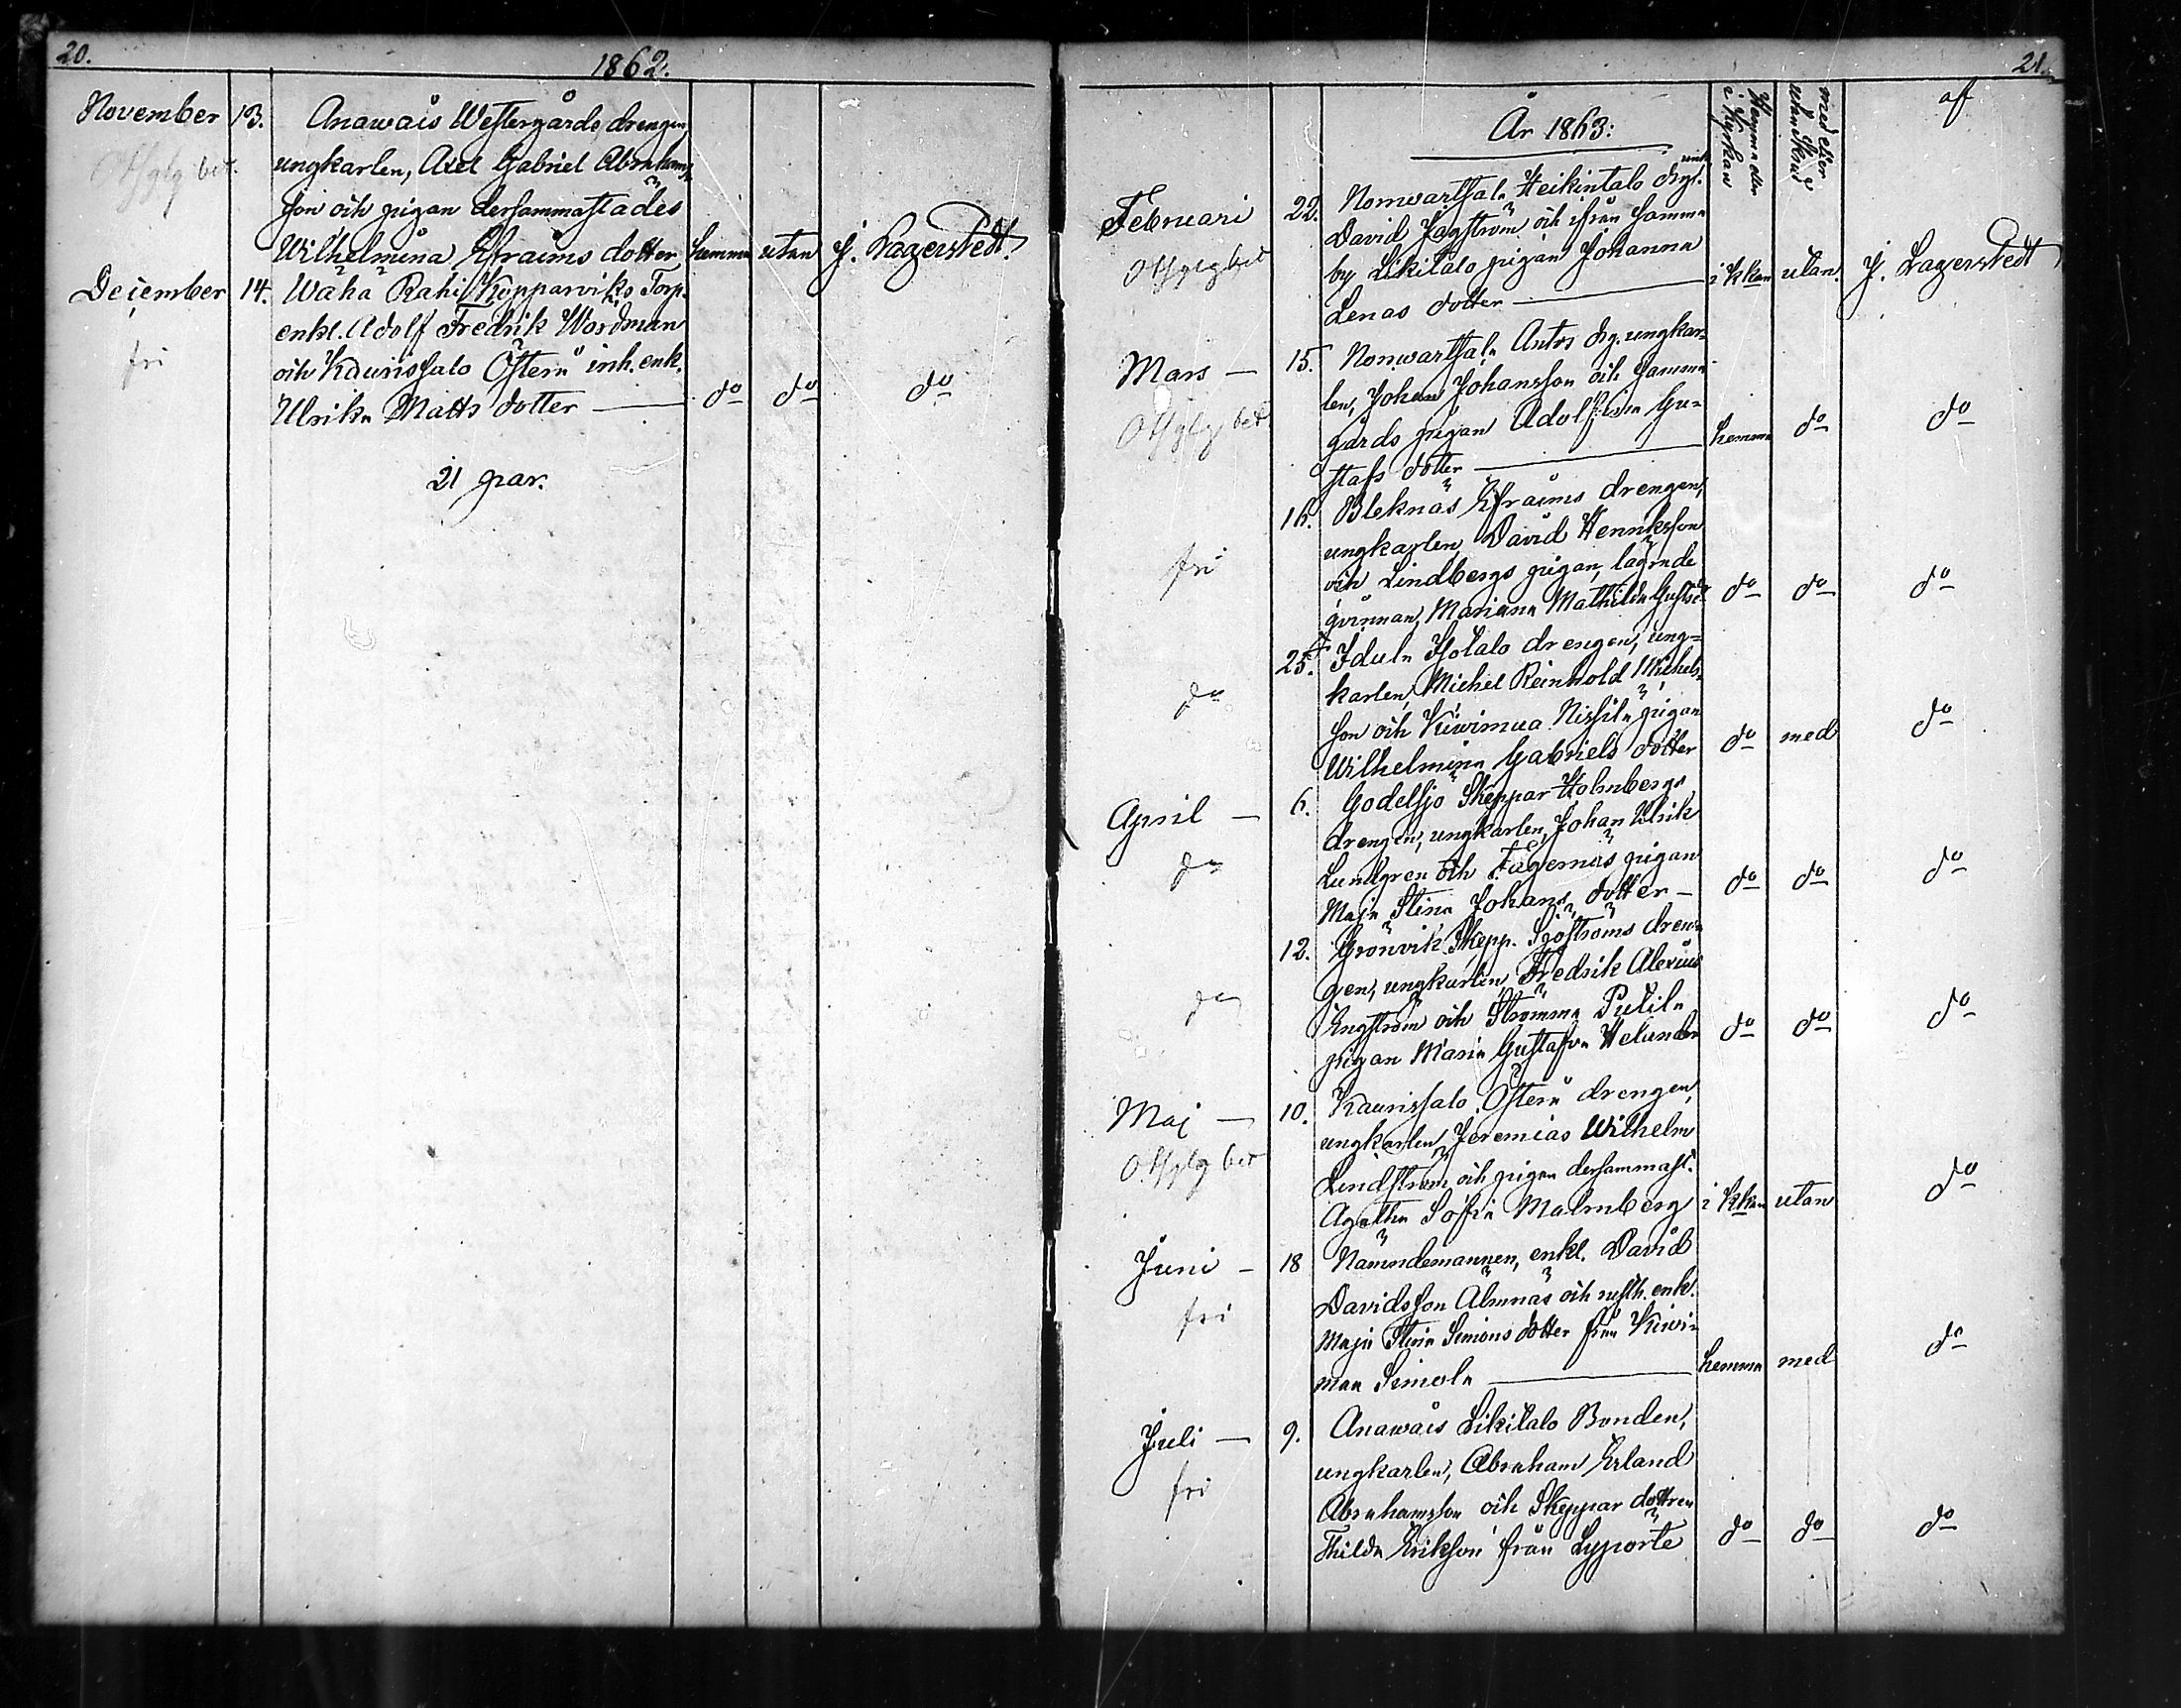 20.
1862.
November 13. Anawais Westergårds drengen,
ungkarlen, Axel Gabriel Abrahams-
son och pigan dersammastädes
Wilhelmina Efraims dotter hemma utan J. Lagerstedt.
December 14. Waha Rahi Kopparviks Torp.
enkl. Adolf Fredrik Wördman
fri
och Kaurissalo Österu inh. enk.
Ulrika Matts dotter — do do do
21 par.
21.
År 1863:
hemma eller i Kyrkan
med eller utan Skrud
af
Februari 22. Nonwartsala Heikintalo drgn.
David Fagström och ifrån samma
by Likitalo pigan Johanna
Lenas dotter — i kkan utan J. Lagerstedt
Mars — 15. Nonwartsala Antos drg. ungkar-
len, Johan Johansson och samma
gårds pigan Adolfina Gu-
stafs dotter — hemma do do
16. Bleknäs Efraims drengen,
ungkarlen, David Henriksson
fri
och Lindbergs pigan, lägrade
qvinnan, Mariana Mathilda do do do
25. Idula Isotalo drengen, ung-
karlen, Michel Reinhold Michels-
do
son och Kiwimua Nissila pigan
Wilhelmina Gabriels dotter do med do
April — 6. Godelsjö Skeppar Holmbergs
drengen, ungkarlen, Johan Ulrik
do
Lundgren och Fagernäs pigan
Maja Stina Johans dotter — do do do
12. Grönvik Skepp. Sjöströms dren-
gen, ungkarlen, Fredrik Alexius
do
Engström och Strömma Putila
pigan Maria Gustafva Helander do do do
Maj — 10. Kaurissalo Österu drengen,
ungkarlen, Jeremias Wilhelm
Lindström och pigan dersammast.
Agatha Sofia Malmberg i kkan utan do
Juni — 18 Nämndemannen, enkl. David
Davidsson Almnäs och rusth. enk.
fri
Maja Stina Simons dotter från Kiwi-
maa Simola — hemma med do
Juli — 9. Anawais Likitalo Bonden,
ungkarlen, Abraham Erland
fri
Abrahamsson och Skeppar dottren
Thilda Erikson från Lyporte do do do